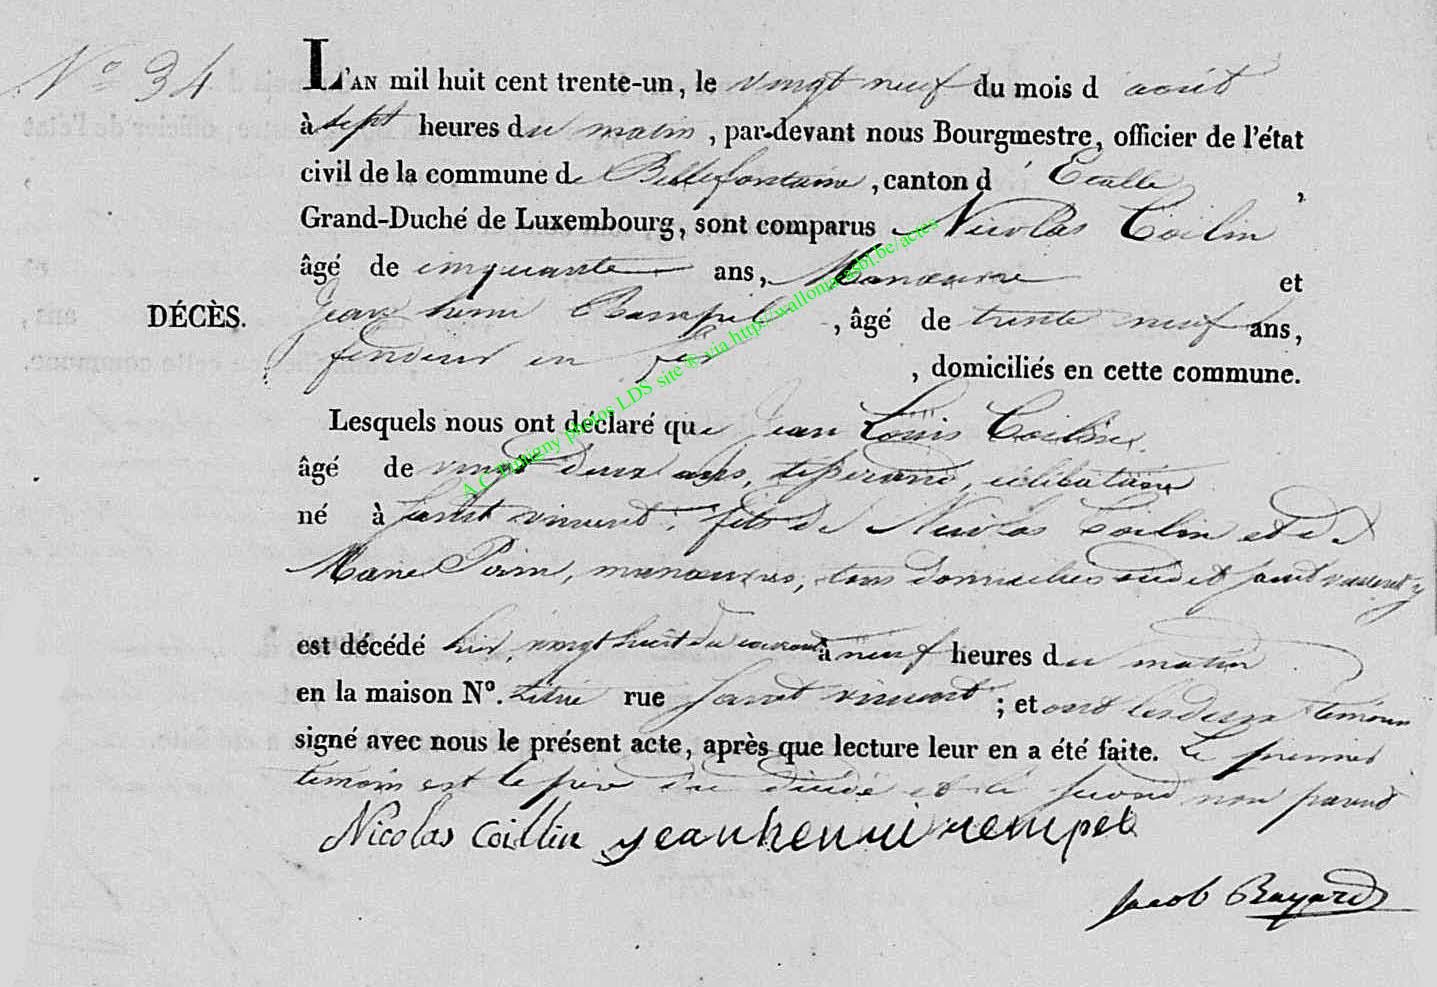 N° 34
L'AN mil huit cent trente-un, le vingt neuf du mois d août
à sept heures du matin, par-devant nous Bourgmestre, officier de l'état
civil de la commune de Bellefontaine, canton d'Etalle,
Grand-Duché de Luxembourg, sont comparus Nicolas Coilin
âgé de cinquante ans, Manœuvre et
DÉCÈS.
jean henri Rempel, âgé de trente neuf ans,
fendeur en fer, domiciliés en cette commune.
Lesquels nous ont déclaré que Jean Louis Coilin
âgé de vingt deux ans, célibataire
né à saint vincent, fils de Nicolas Coilin et de
Marie manœuvres, tous domiciliés audit saint vincent
est décédé hier, vingt huit du courant à neuf heures du matin
en la maison N°. rue saint vincent; et ont les deux témoins
signé avec nous le présent acte, après que lecture leur en a été faite. Le premier
témoin est le père du décédé et le second non parent
Nicolas Coillin jean henri rempel
Jacob Bayard
A.C. photos LDS site ® via http://wallonia-asbl.be/actes